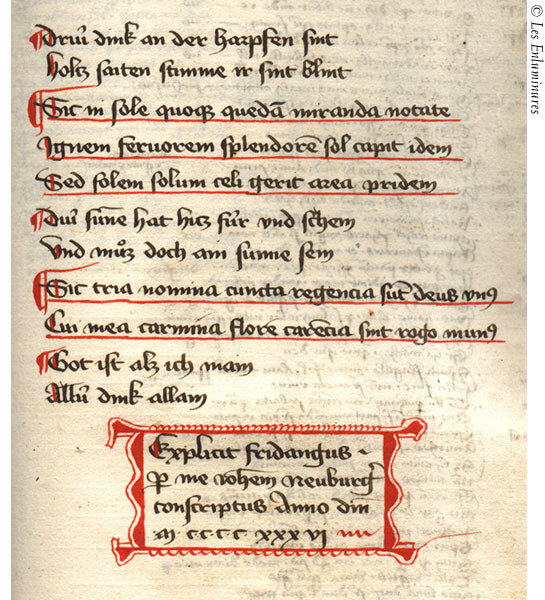 Driu̇ dink an der harpfen sint
holtz saiten stimme ir sint blint
Sic in sole quoqȝ quedā miranda notate
Ignem feruorem splendorē sol capit idem
Sed solem solum celi gerit area pridem
Diu̇ sūne hat hitz fúr vnd schem
Vnd můz doch ain sunne sem
Sic tria nomina cuncta regencia sūt deus vnꝰ
Cui mea carmina flore carēcia sint rogo munꝰ
Got ist alz ich main
Alliu̇ dink allain
Explicit fridangus
ꝑ me Neuburg
conscriptus Anno dm̄
M cccc xxxvi
© Les Enluminures